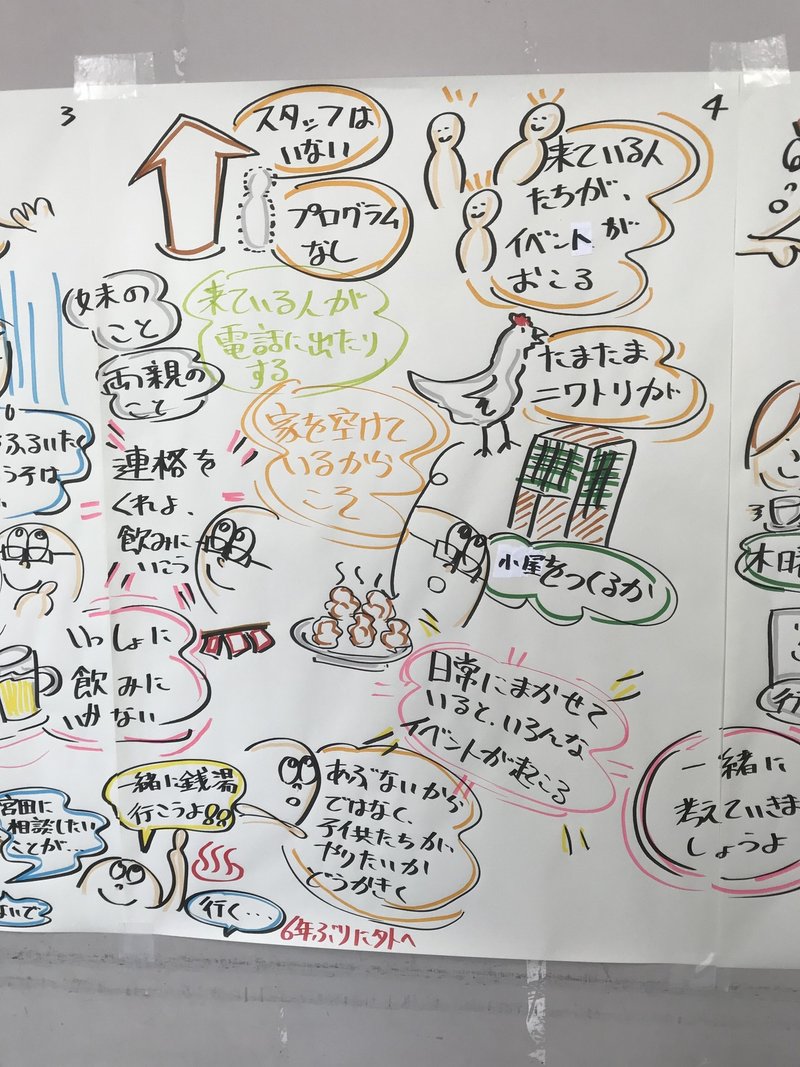 3
4
スタッフは
いない
プログラム
なし
来ている人
たちが、
イベントが
おこる
妹の
こと
両親の
こと
来ている人が
電話に出たり
する
たまたま
ニワトリが
家を空けて
いるから
こそ
連絡を
くれよ、
飲みに
いこう
小屋をつくるか
いっしょに
飲みに
いかない
日常にまかせて
いると、いろんな
イベントが起こる
一緒に銭湯
行こうよ!!
宮田に
相談したい
ことが…
行く…
6年ぶりに外へ
あぶないから
ではなく、
子供たちが、
やりたいか
どうかきく
一緒に
考えていきま
しょうよ
木曜
行
ないで
ふるいた
う子は